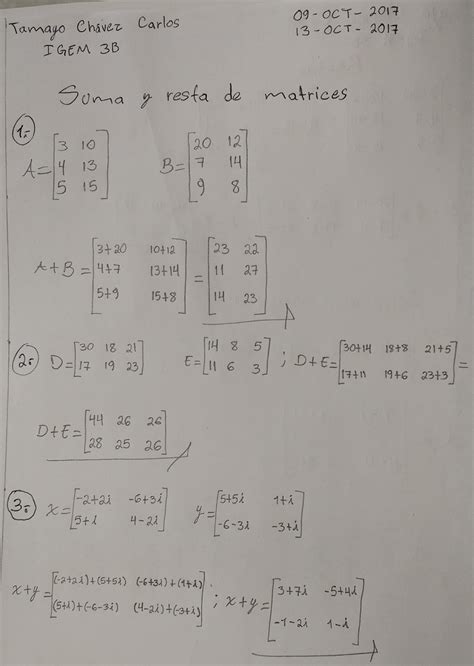 Tamayo Chávez Carlos
IGEM 3B
09-OCT-2017
13-OCT-2017
Suma y resta de matrices
1.-
A=[3 10
4 13
5 15]
B=[20 12
7 14
9 8]
A+B=[3+20 10+12
4+7 13+14
5+9 15+8]
=[23 22
11 27
14 23]
2.-
D=[30 18 21
17 19 23]
E=[14 8 5
11 6 3]
; D+E=[30+14 18+8 21+5
17+11 19+6 23+3]=
D+E=[44 26 26
28 25 26]
3.-
x=[-2+2i -6+3i
5+i 4-2i]
y=[5+5i 1+i
-6-3i -3+i]
x+y=[(-2+2i)+(5+5i) (-6+3i)+(1+i)
(5+i)+(-6-3i) (4-2i)+(-3+i)]
; x+y=[3+7i -5+4i
-1-2i 1-i]